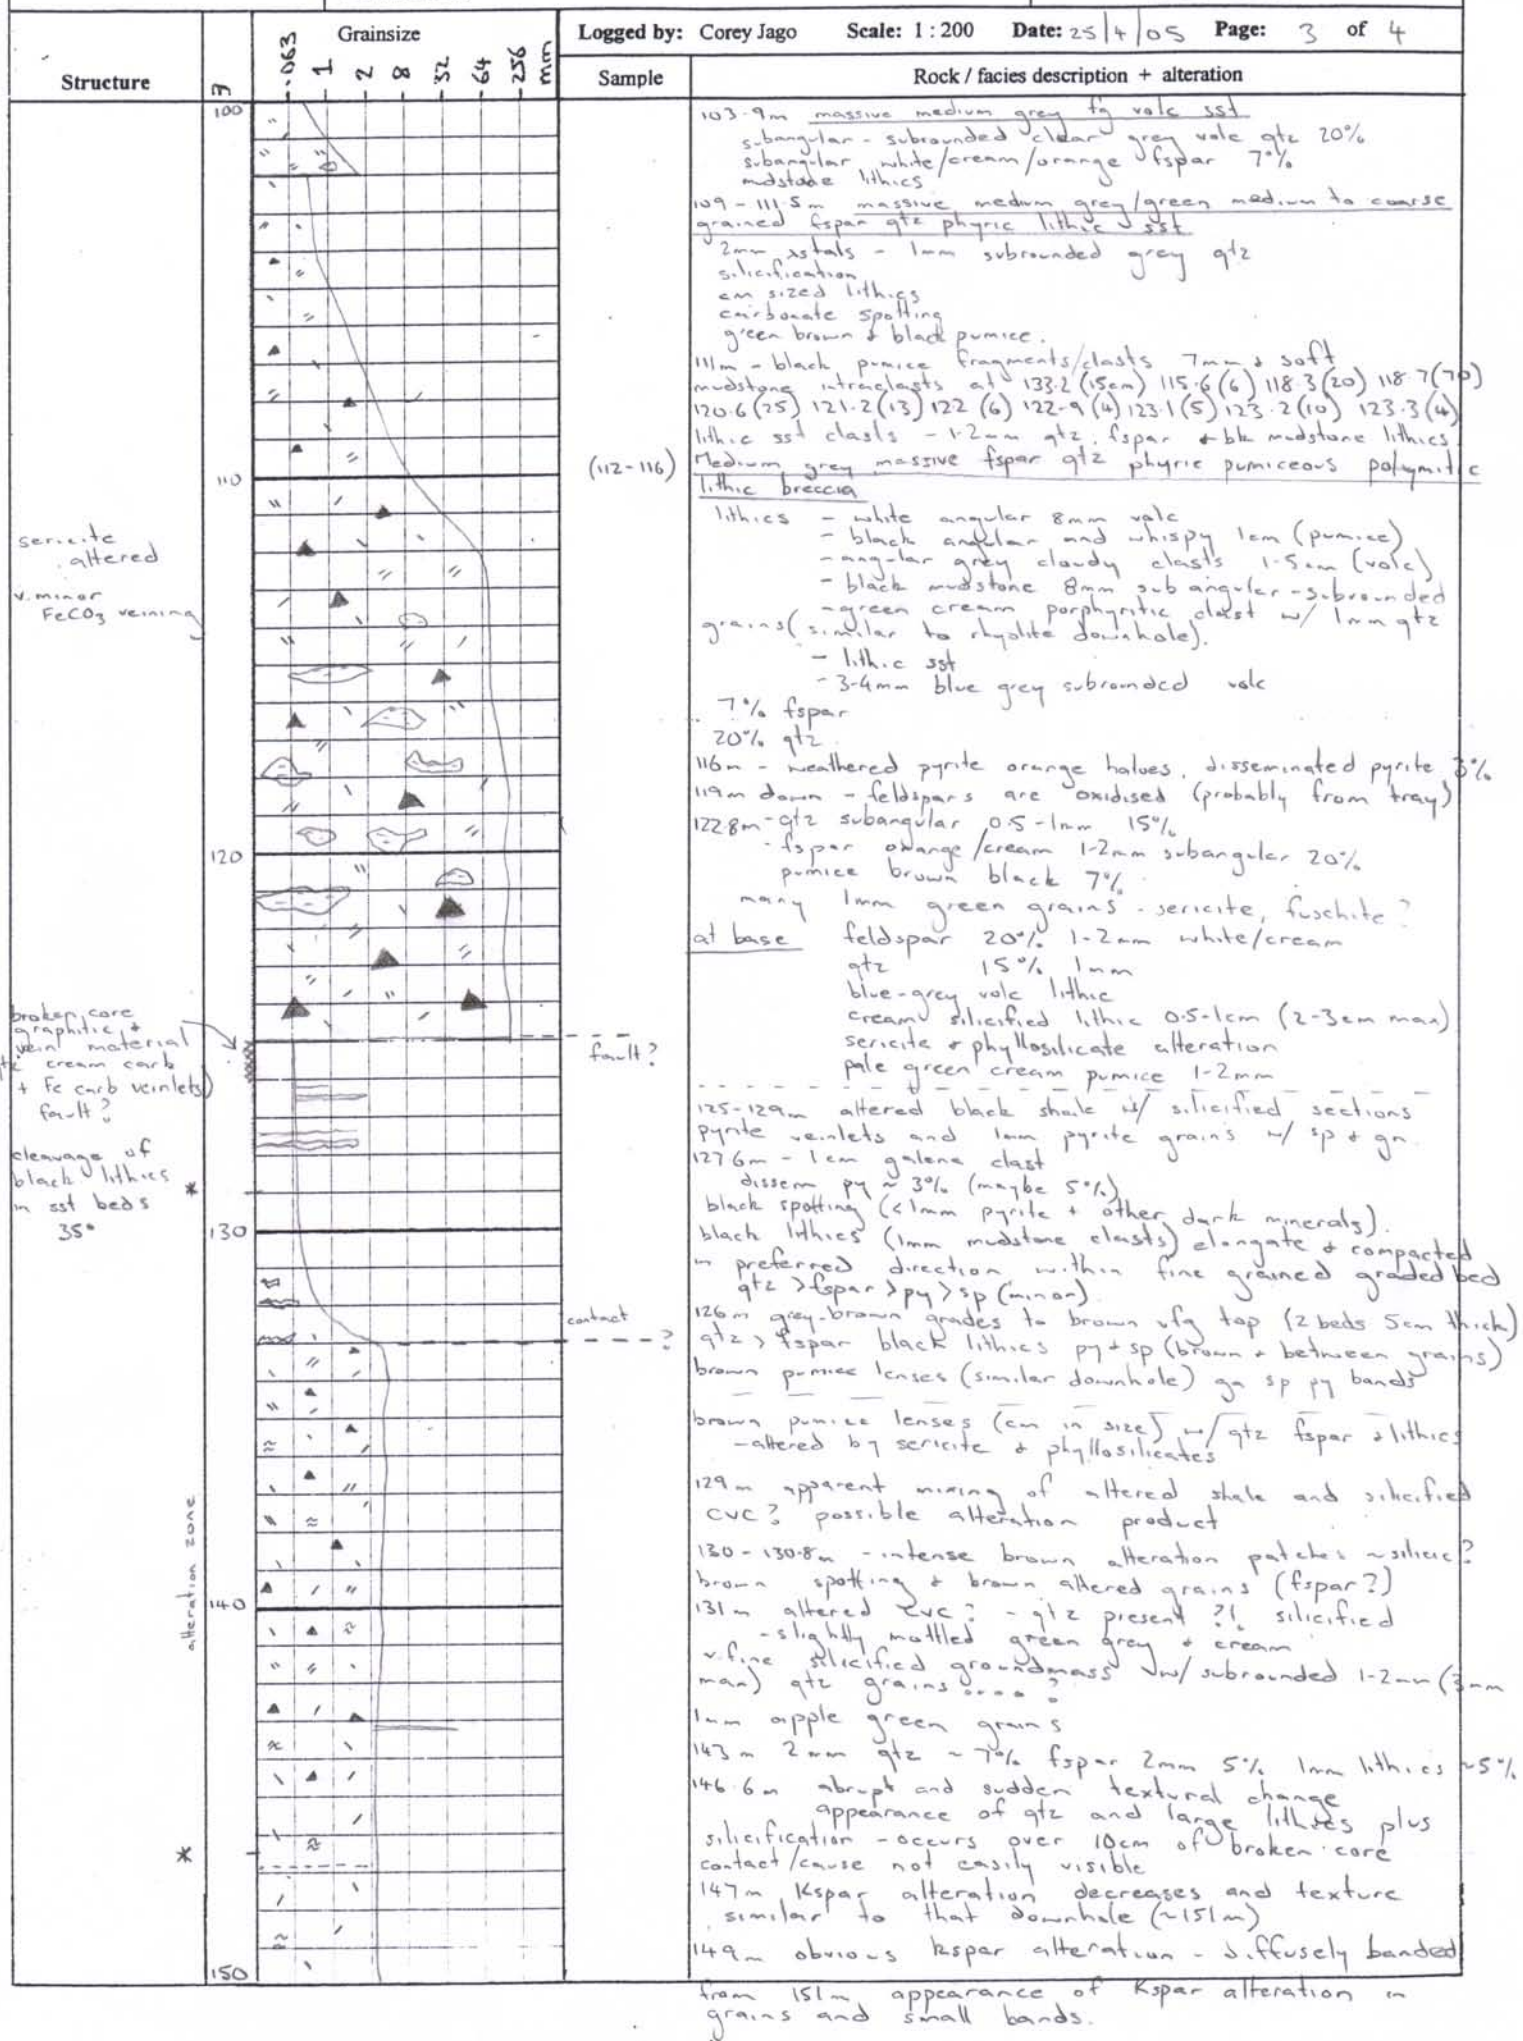 Grainsize
Logged by: Corey Jago Scale: 1 : 200 Date: 25/4/05 Page: 3 of 4
Structure
m
.063 1 2 8 32 64 256 mm
Sample
Rock / facies description + alteration
100
103.9m massive medium grey fg volc sst
subangular - subrounded clear grey volc qtz 20%
subangular white/cream/orange fspar 7%
mudstone lithics
109 - 111.5m massive medium grey/green medium to coarse
grained fspar qtz phyric lithic sst
2mm xstals - 1mm subrounded grey qtz
silicification
cm sized lithics
carbonate spotting
green brown & black pumice.
111m - black pumice fragments/clasts 7mm & soft
mudstone intraclasts at 133.2 (15cm) 115.6 (6) 118.3 (20) 118.7 (70)
120.6 (25) 121.2 (13) 122 (6) 122.9 (4) 123.1 (5) 123.2 (10) 123.3 (4)
lithic sst clasts - 1-2mm qtz, fspar + bk mudstone lithics
(112-116)
Medium grey massive fspar qtz phyric pumiceous polymitic
110
lithic breccia
lithics - white angular 8mm volc
- black angular and whispy 1cm (pumice)
sericite
altered
- angular grey cloudy clasts 1-5cm (volc)
- black mudstone 8mm subangular - subrounded
v. minor
FeCO3 veining
- green cream porphyritic clast w/ 1mm qtz
grains (similar to rhyolite downhole).
- lithic sst
- 3-4mm blue grey subrounded volc
7% fspar
20% qtz
116m - weathered pyrite orange halves, disseminated pyrite 3%
119m down - feldspars are oxidised (probably from tray)
122.8m - qtz subangular 0.5-1mm 15%
120
- fspar orange/cream 1-2mm subangular 20%
pumice brown black 7%
many 1mm green grains - sericite, fuschite?
at base feldspar 20% 1-2mm white/cream
qtz 15% 1mm
blue-grey volc lithic
broken core
graphitic &
vein material
cream carb
+ Fe carb veinlets)
fault?
cream silicified lithic 0.5-1cm (2-3cm max)
fault?
sericite & phyllosilicate alteration
pale green cream pumice 1-2mm
125-129m altered black shale w/ silicified sections
pyrite veinlets and 1mm pyrite grains w/ sp & gn
cleavage of
black lithics
in sst beds
35°
*
127.6m - 1cm galena clast
dissem py ~ 3% (maybe 5%)
black spotting (<1mm pyrite + other dark minerals).
130
black lithics (1mm mudstone clasts) elongate & compacted
in preferred direction within fine grained graded bed
qtz > fspar > py > sp (minor)
contact
?
126m grey-brown grades to brown vfg top (2 beds 5cm thick)
qtz > fspar black lithics py + sp (brown & between grains)
brown pumice lenses (similar downhole) ga sp py bands
brown pumice lenses (cm in size) w/ qtz fspar & lithics
- altered by sericite & phyllosilicates
129m apparent mixing of altered shale and silicified
CVC? possible alteration product
alteration zone
130 - 130.8m - intense brown alteration patches ~ silicic?
brown spotting & brown altered grains (fspar?)
140
131m altered CVC? - qtz present ?! silicified
- slightly mottled green grey & cream
v. fine silicified groundmass w/ subrounded 1-2mm (3mm
max) qtz grains....?
1mm apple green grains
143m 2mm qtz ~ 7% fspar 2mm 5% 1mm lithics ~5%
146.6m abrupt and sudden textural change
appearance of qtz and large lithics plus
silicification - occurs over 10cm of broken core
*
contact/cause not easily visible
147m Kspar alteration decreases and texture
similar to that downhole (~151m)
149m obvious kspar alteration - diffusely banded
150
from 151m appearance of Kspar alteration in
grains and small bands.